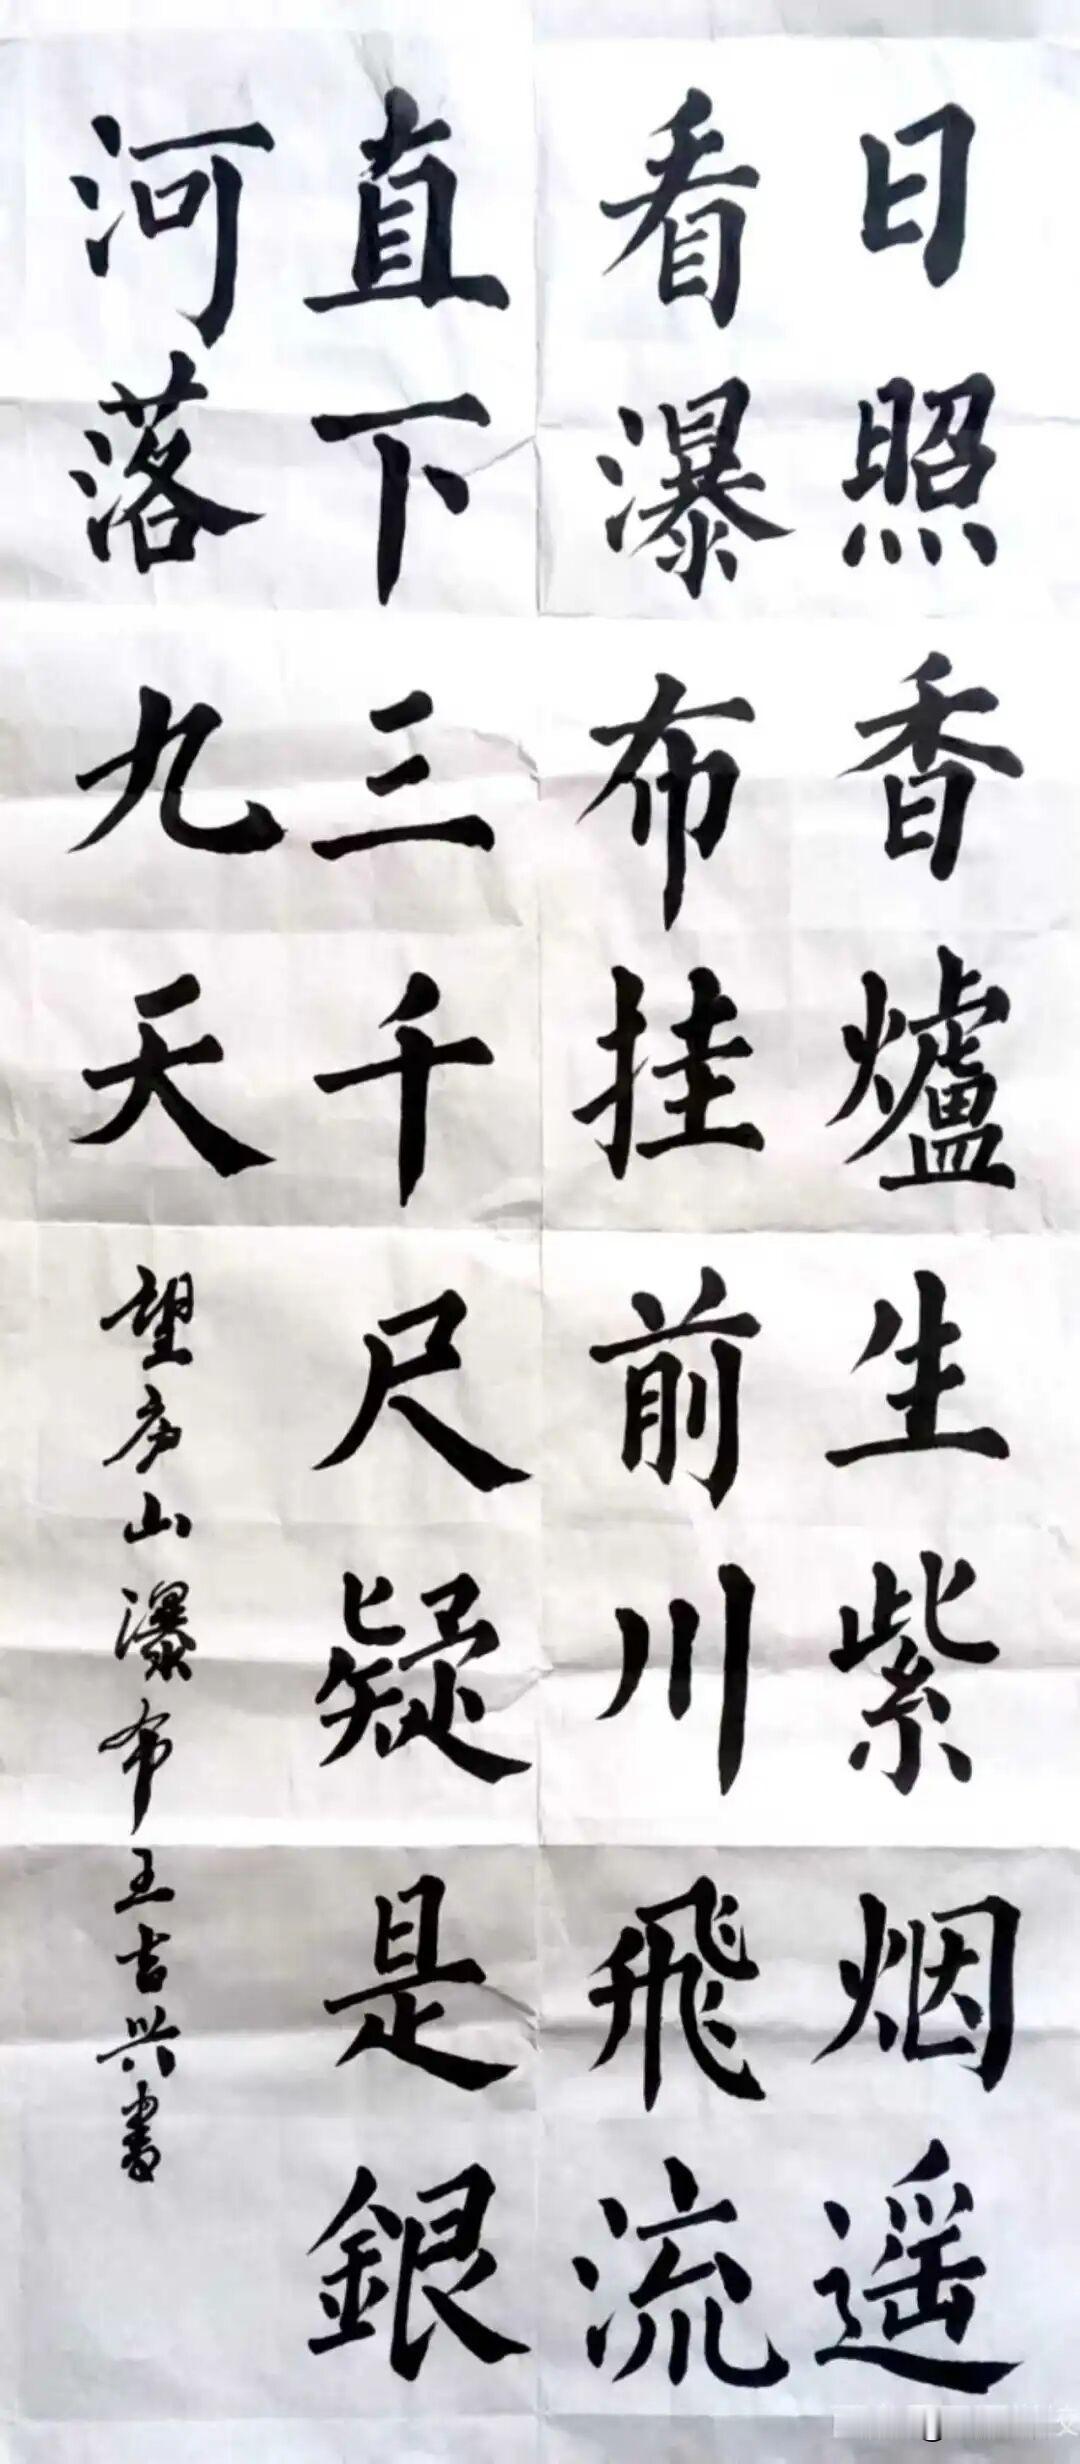 日照香爐生紫烟遥
看瀑布挂前川飛流
直下三千尺疑是銀
河落九天
望庐山瀑布王吉兴書